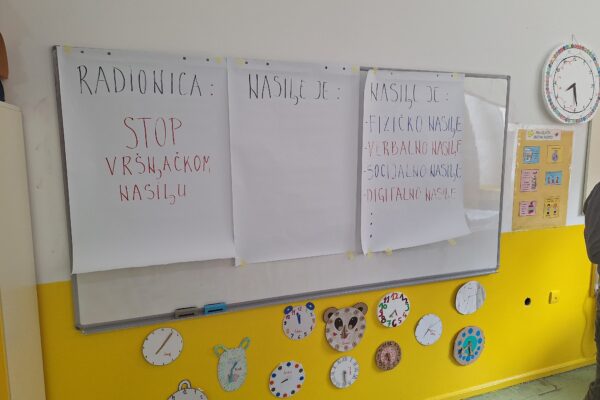 RADIONICA:
STOP
VRŠNJAČKOM
NASILJU
NASILJE JE:
NASILJE JE:
-FIZIČKO NASILJE
-VERBALNO NASILJE
-SOCIJALNO NASILJE
-DIGITALNO NASILJE